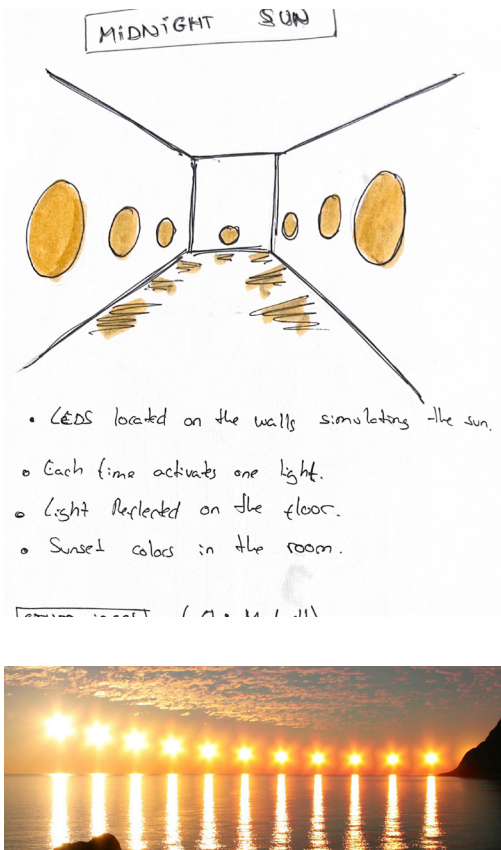 MiDNiGHT SUN
• LEDS located on the walls simulating the sun.
• Each time activates one light.
• Light Reflected on the floor.
• Sunset colors in the room.